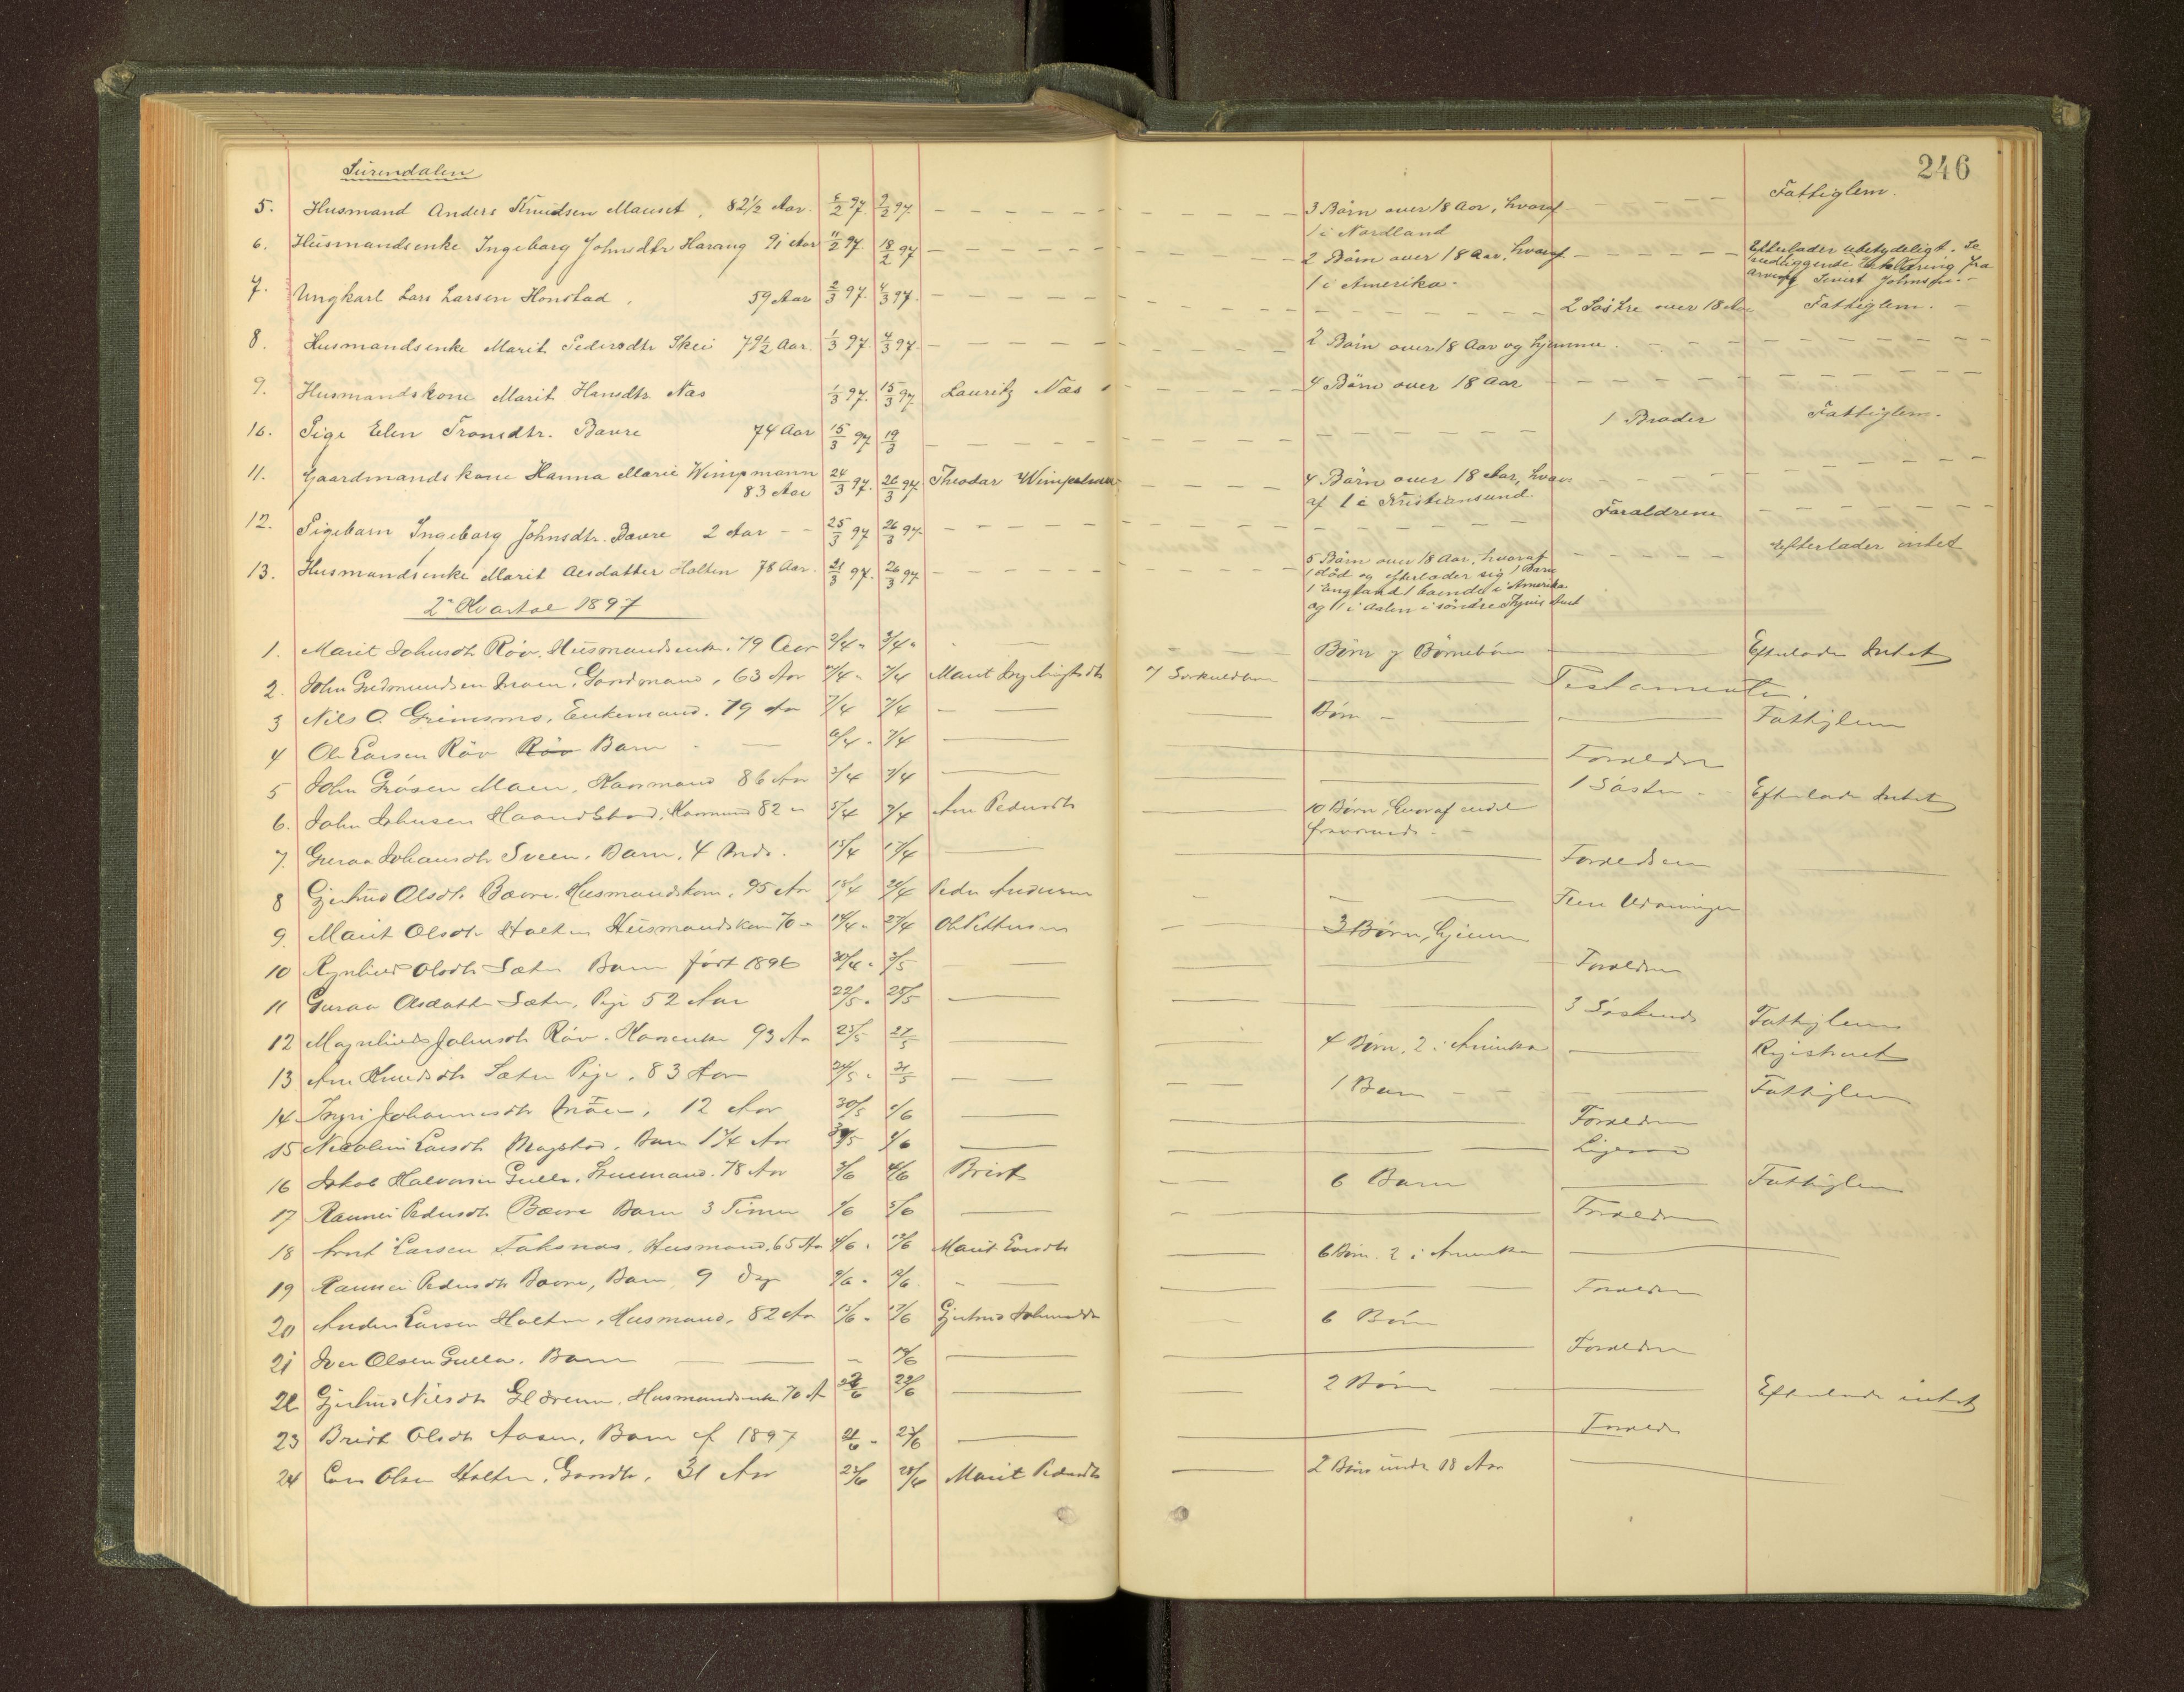 246
Surendalen
5. Husmand Anders Knudsen Mauset, 82½ Aar. 5/2 97. 9/2 97. 3 Børn over 18 Aar, hvoraf Fattiglem.
1 i Nordland
6. Husmandsenke Ingeborg Johnsdtr Harang 91 Aar 11/2 97. 18/2 97 2 Børn over 18 Aar, hvoraf Efterlader ubetydeligt. Se
1 i Amerika. indliggende Erklæring fra
arving Sivert Johnsen.
7. Ungkarl Lars Larsen Honstad, 59 Aar 2/3 97. 4/3 97. 2 Søstre over 18 Aar Fattiglem.
8. Husmandsenke Marit Pedersdtr Skei 79½ Aar. 1/3 97. 4/3 97. 2 Børn over 18 Aar og hjemme.
9. Husmandskone Marit Hansdtr Næs 1/3 97. 15/3 97. Lauritz Næs 4 Børn over 18 Aar
10. Pige Elen Tronsdtr. Bævre 74 Aar 15/3 97 19/3 1 Broder Fattiglem.
11. Gaardmandskone Hanna Marie Wimpmann 24/3 97. 26/3 97 Theodor 4 Børn over 18 Aar, hvor
83 Aar af 1 i Kristiansund.
12. Pigebarn Ingeborg Johnsdtr. Bævre 2 Aar 25/3 97 26/3 97. Foraldrene
13. Husmandsenke Marit Olsdatter Holten 78 Aar. 21/3 97. 26/3 97 5 Børn over 18 Aar, hvoraf Efterlader intet
1 død og efterlader sig 1 Barn
1 England 1 boende i Amerika
og 1 i Aalen i søndre
2' Kvartal 1897
1. Marit Johnsdtr Røv. Husmandsenke. 79 Aar 2/4 " 3/4 " Børn og Børnebørn Efterlader Intet
2. John Gudmundsen Moen, Gaardmand, 63 Aar 7/4 Marit Testamente.
3 Nils O. Grimsmo, Enkemand. 79 Aar 7/4 7/4 Børn Fattiglem
4 Ole Larsen Røv Barn 6/4 " 7/4 Forældre
5 John Moen, Kaarmand 86 Aar 3/4 7/4 1 Søster Efterlader Intet
6. John Johnsen Haandstad, Kaarmand 82 " 5/4 7/4 Ane Pedersdtr 10 Børn, hvoraf endel
fraværende
7. Guraa Johansdtr Sveen, Barn, 4 Mdr. 15/4 17/4 Forældrene
8 Gjertrud Olsdtr. Bævre. Husmandskone, 95 Aar 18/4 Peder Andersen Flere Udarvinger
9. Marit Olsdtr Holten Husmandskone 70 " 14/4 " 27/4 Ole Pettersen 3 Børn, hjemme
10 Ragnhild Olsdtr Sæter Barn født 1896 30/4 " 3/5 Forældre
11 Guraa Olsdatter Sæter, Pige 52 Aar 22/5 " 25/5 3 Søskende Fattiglem
12 Magnhild Johnsdtr Røv. Kaarenke 93 Aar 25/5 4 Børn, 2 i Amerika Registreret
13 Ane Knudsdtr Sæter Pige, 83 Aar 24/5 " 31/5 1 Barn Fattiglem
14 Ingri Johannesdtr Moen, 12 Aar 30/5 Forældre
15 Nicoline Larsdtr Barn 1¾ Aar Ligesaa
16 Jakob Halvorsen Gulla, Husmand. 78 Aar 3/6 4/6 Brit 6 Barn Fattiglem
17 Rannei Pedersdtr Bævre Barn 3 Timer 5/6 Forældre
18 Arnt Larsen Taksnæs, Husmand, 65 Aar 4/6 " 12/6 Marit 6 Børn. 2 i Amerika
19 Rannei Pedersdtr Bævre, Barn 9 Dage 9/6 " 12/6 Forældre
20 Anders Larsen Holten, Husmand, 82 Aar 13/6 " 17/6 Gjertrud Johnsdtr 6 Børn
21 Iver Olsen Gulla, Barn 19/6 Forældre
22 Gjertrud Nilsdtr Husmandsenke 70 A 22/6 2 Børn Efterlader intet
23 Brit Olsdtr Aasen, Barn af 1897 21/6 " 27/6 Forældre
24 Lars Olsen Holten, Gaardbr. 31 Aar 23/6 28/6 Marit Pedersdtr 2 Børn under 18 Aar